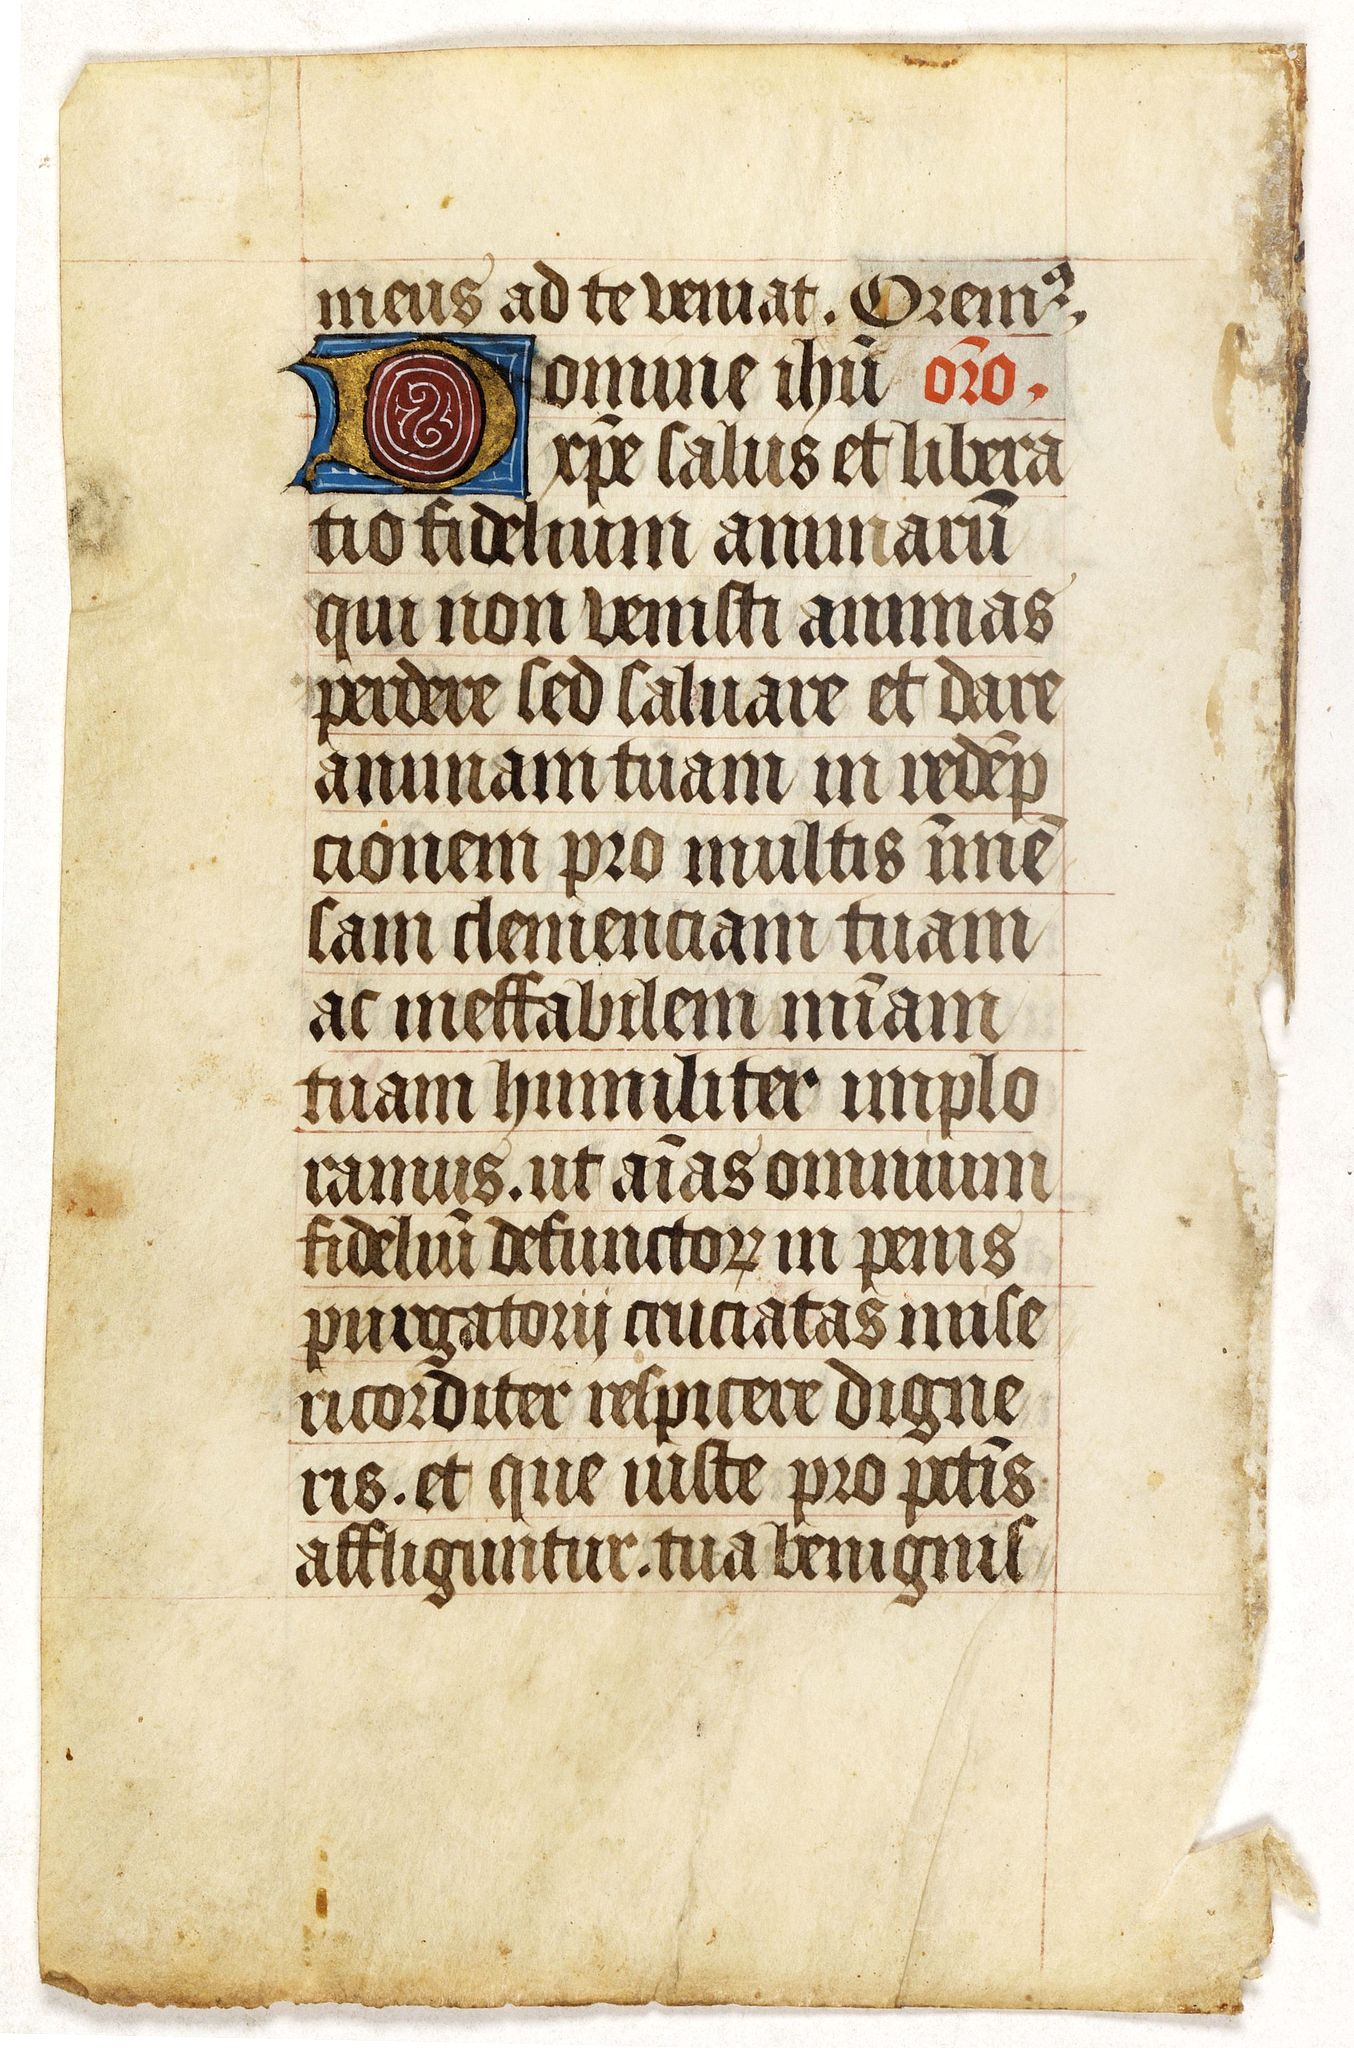 meus ad te veniat. Oremꝰ.
Domine ihū oro̅.
xp̅e salus et libera
tio fidelium animarū
qui non venisti animas
perdere sed saluare et dare
animam tuam in redēp
cionem pro multis īmē
sam clemenciam tuam
ac ineffabilem mi̅am
tuam humiliter implo
ramus. ut ai̅as omnium
fideliū defunctoꝝ in penis
purgatorij cruciatas mise
ricorditer respicere digne
ris. et que iuste pro pctīs
affliguntur. tua benignis